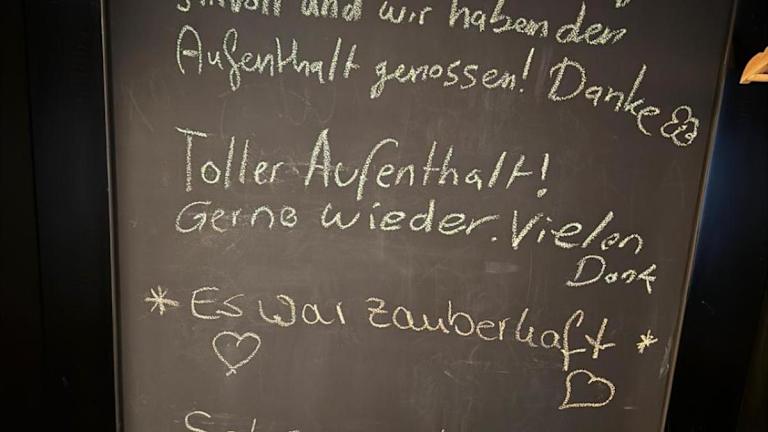 sinnvoll und wir haben den
Aufenthalt genossen! Danke
Toller Aufenthalt!
Gerne wieder. Vielen
Dank
* Es war zauberhaft *